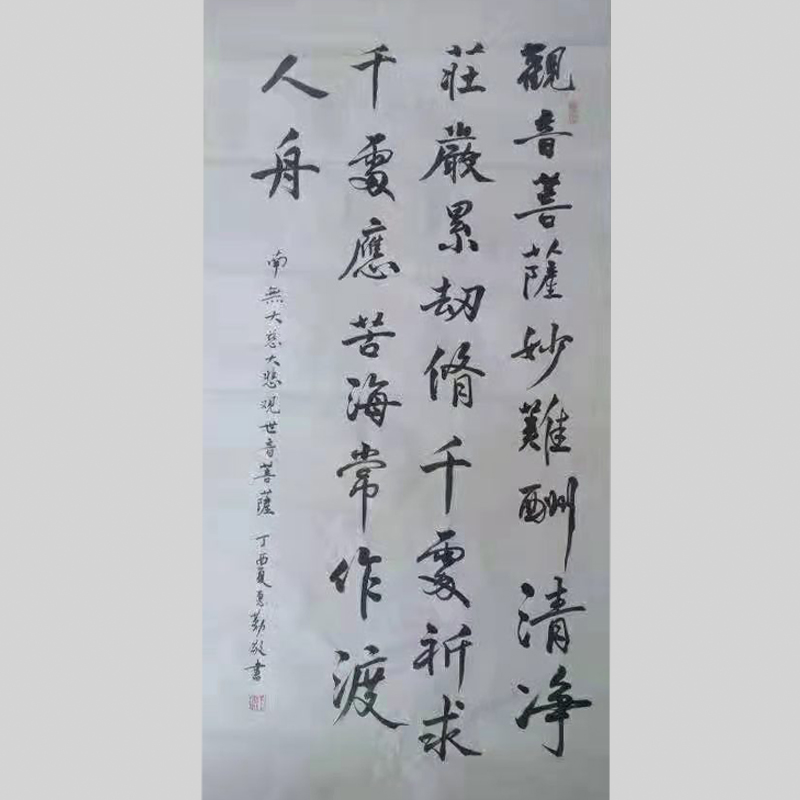 觀音菩薩妙難酬清净
莊嚴累劫脩千處祈求
千處應苦海常作渡
人舟
南無大慈大悲观世音菩薩
丁酉夏惠勤敬書